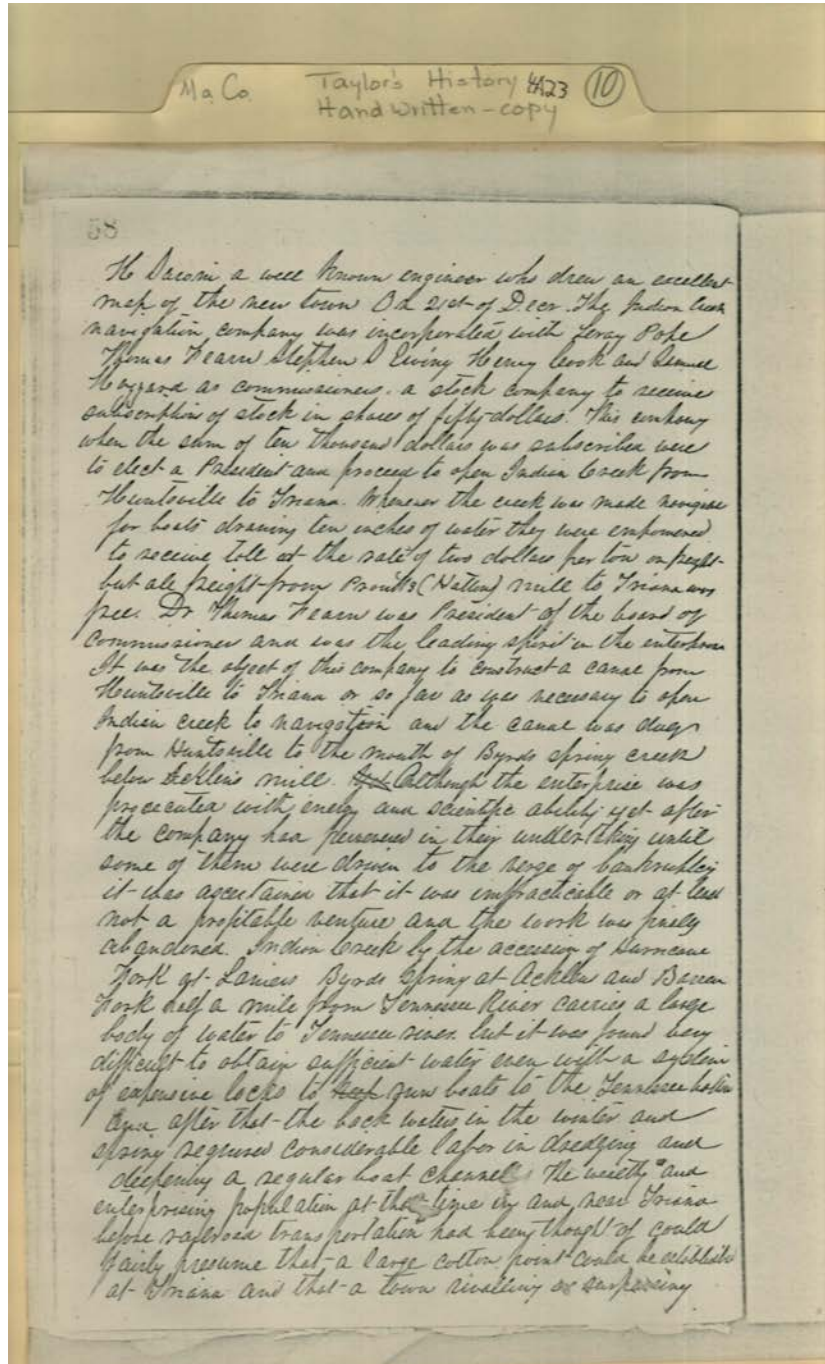 Ma Co. Taylor's History 4A23 10
Handwritten - copy
58
H a well known engineer who drew an excellent
map of the new town On 21st of Decr. The Indian Creek
navigation company was incorporated with Leroy Pope
Thomas Fearn Stephen S Ewing Henry Cook and Samuel
Hazzard as commissioners. a stock company to receive
subscriptions of stock in shares of fifty dollars. This company
when the sum of ten thousand dollars was subscribed were
to elect a President and proceed to open Indian Creek from
Huntsville to Triana. Whenever the creek was made
for boats drawing ten inches of water they were empowered
to receive toll at the rate of two dollars per ton on freight
but all freight from (Hattons) mill to Triana was
free. Dr Thomas Fearn was President of the board of
commissioners and was the leading spirit in the enterprise
It was the object of this company to construct a canal from
Huntsville to Triana or so far as was necessary to open
Indian creek to navigation and the canal was dug
from Huntsville to the mouth of Byrds spring creek
below mill. Although the enterprise was
prosecuted with energy and scientific ability yet after
the company had persevered in their undertaking until
some of them were driven to the verge of bankruptcy
it was ascertained that it was impracticable or at least
not a profitable venture and the work was finally
abandoned. Indian Creek by the accession of Hurricane
Fork at Laniers Byrds Spring at Acklins and Barren
Fork half a mile from Tennessee River carries a large
body of water to Tennessee river. but it was found very
difficult to obtain sufficient water even with a system
of expensive locks to keep run boats to the Tennessee
and after that the back waters in the winter and
spring required considerable labor in dredging and
deepening a regular boat channel. The wealthy and
enterprising population at that time in and near Triana
before railroad transportation had been thought of could
fairly presume that a large cotton point could be established
at Triana and that a town rivalling or surpassing